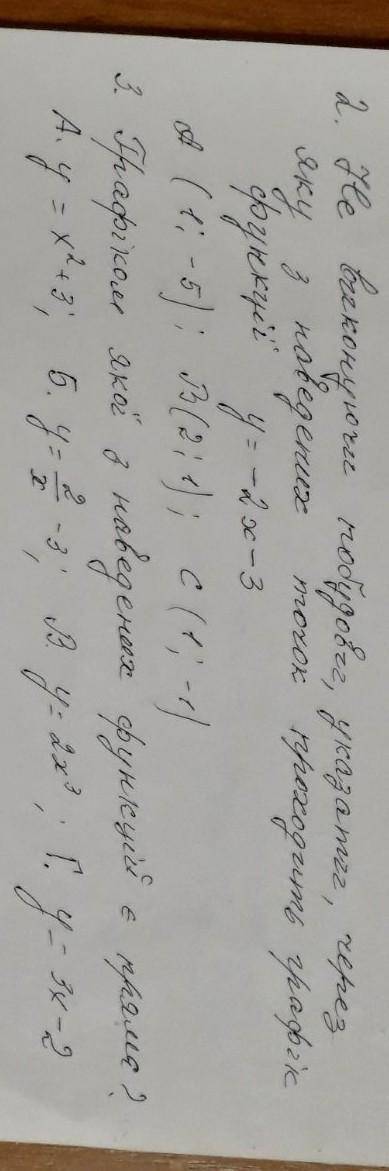 2. Не виконуючи побудови, указати, через
яку з наведених точок проходить графік
функції y = -2x-3
A (1; -5); B(2; 1); C (1; -1)
3. Графіком якої з наведених функцій є пряма?
А. y = x²+3; Б. y = 2/x - 3; В. y = 2x³; Г. y = 3x-2